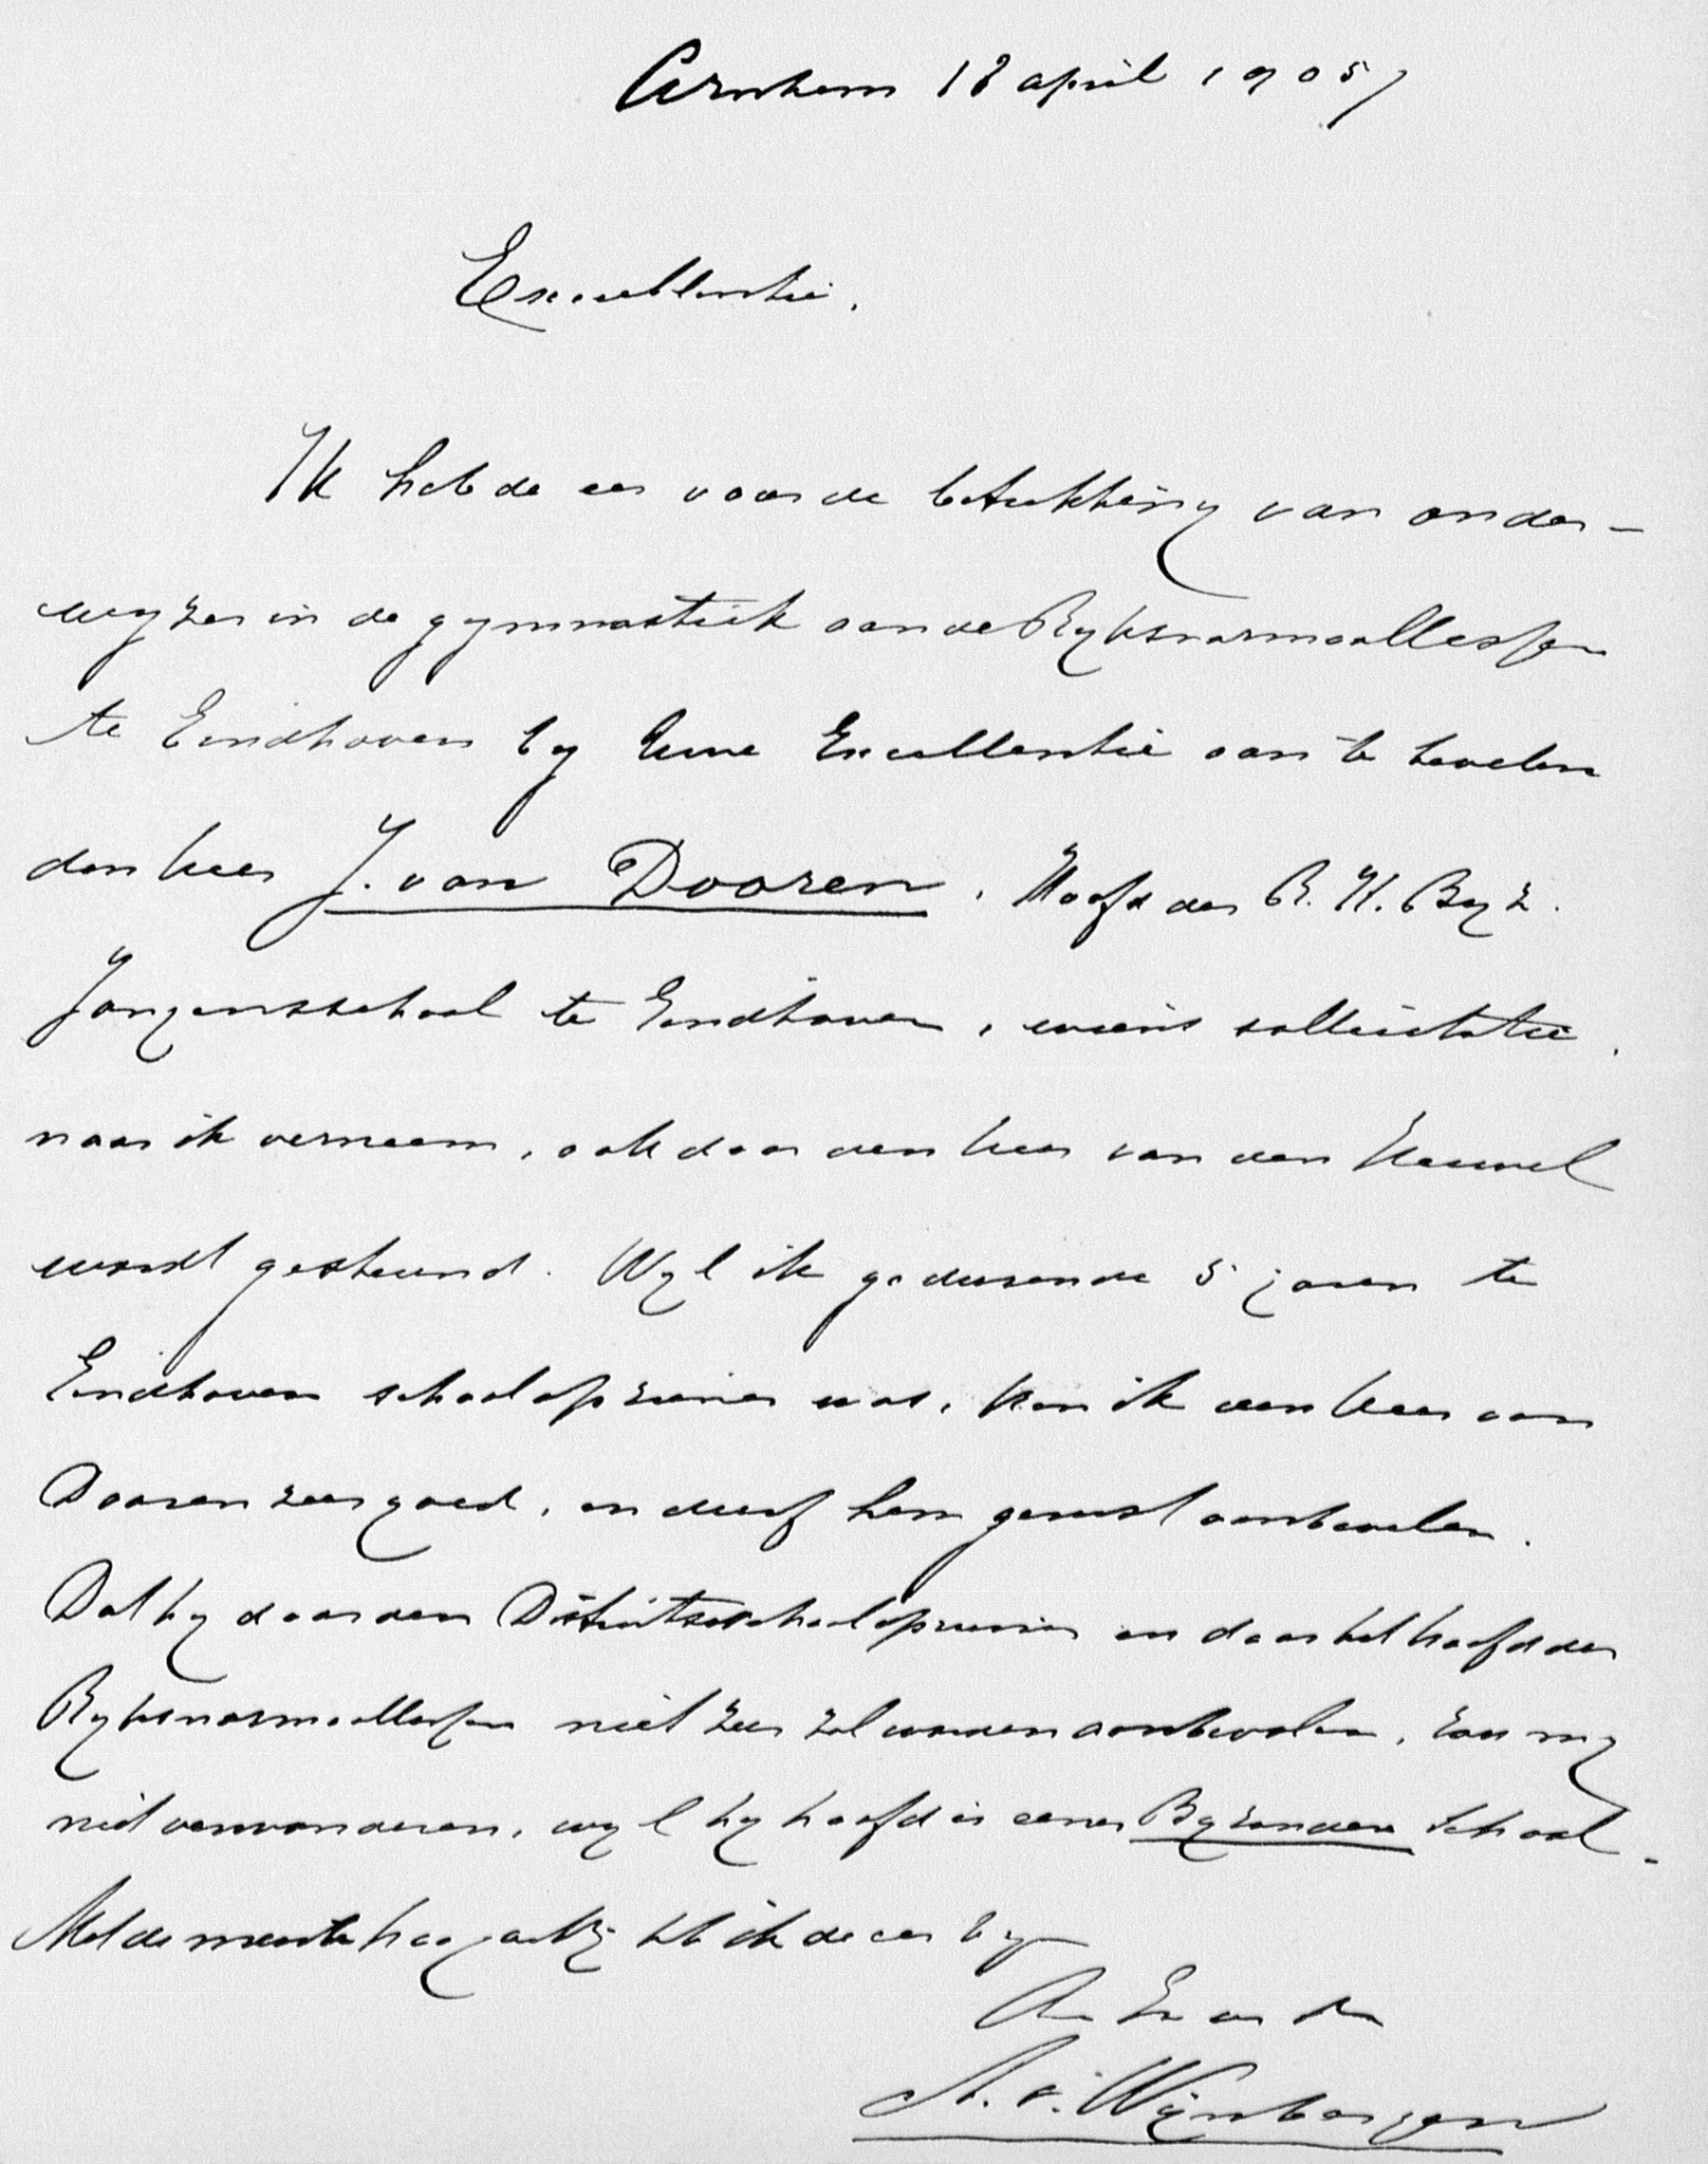 Arnhem 18 april 1905
Excellentie.
Ik heb de eer voor de betrekking van onder-
wyzer in de gymnastiek aan de Ryksnormaallessen
te Eindhoven by Uwe Excellentie aan te bevelen
den heer J. van Dooren, Hoofd der R. K. Byz.
Jongensschool te Eindhoven, wiens sollicitatie,
naar ik verneem, ook door den heer van den Heuvel
wordt gesteund. Wyl ik gedurende 5 jaren te
Eindhoven schoolopziener was, ken ik den heer van
Dooren zeer goed, en durf hem gerust aanbevelen.
Dat hy door den Districtsschoolopziener en door het hoofd der
Ryksnormaallessen niet zeer zal worden aanbevolen, zou my
niet verwonderen, wyl hy hoofd is eener Byzondere School.
Met de meeste hoogachting heb ik de eer te zyn
Uw Exc. dw. dr.
A. v. Wijnbergen